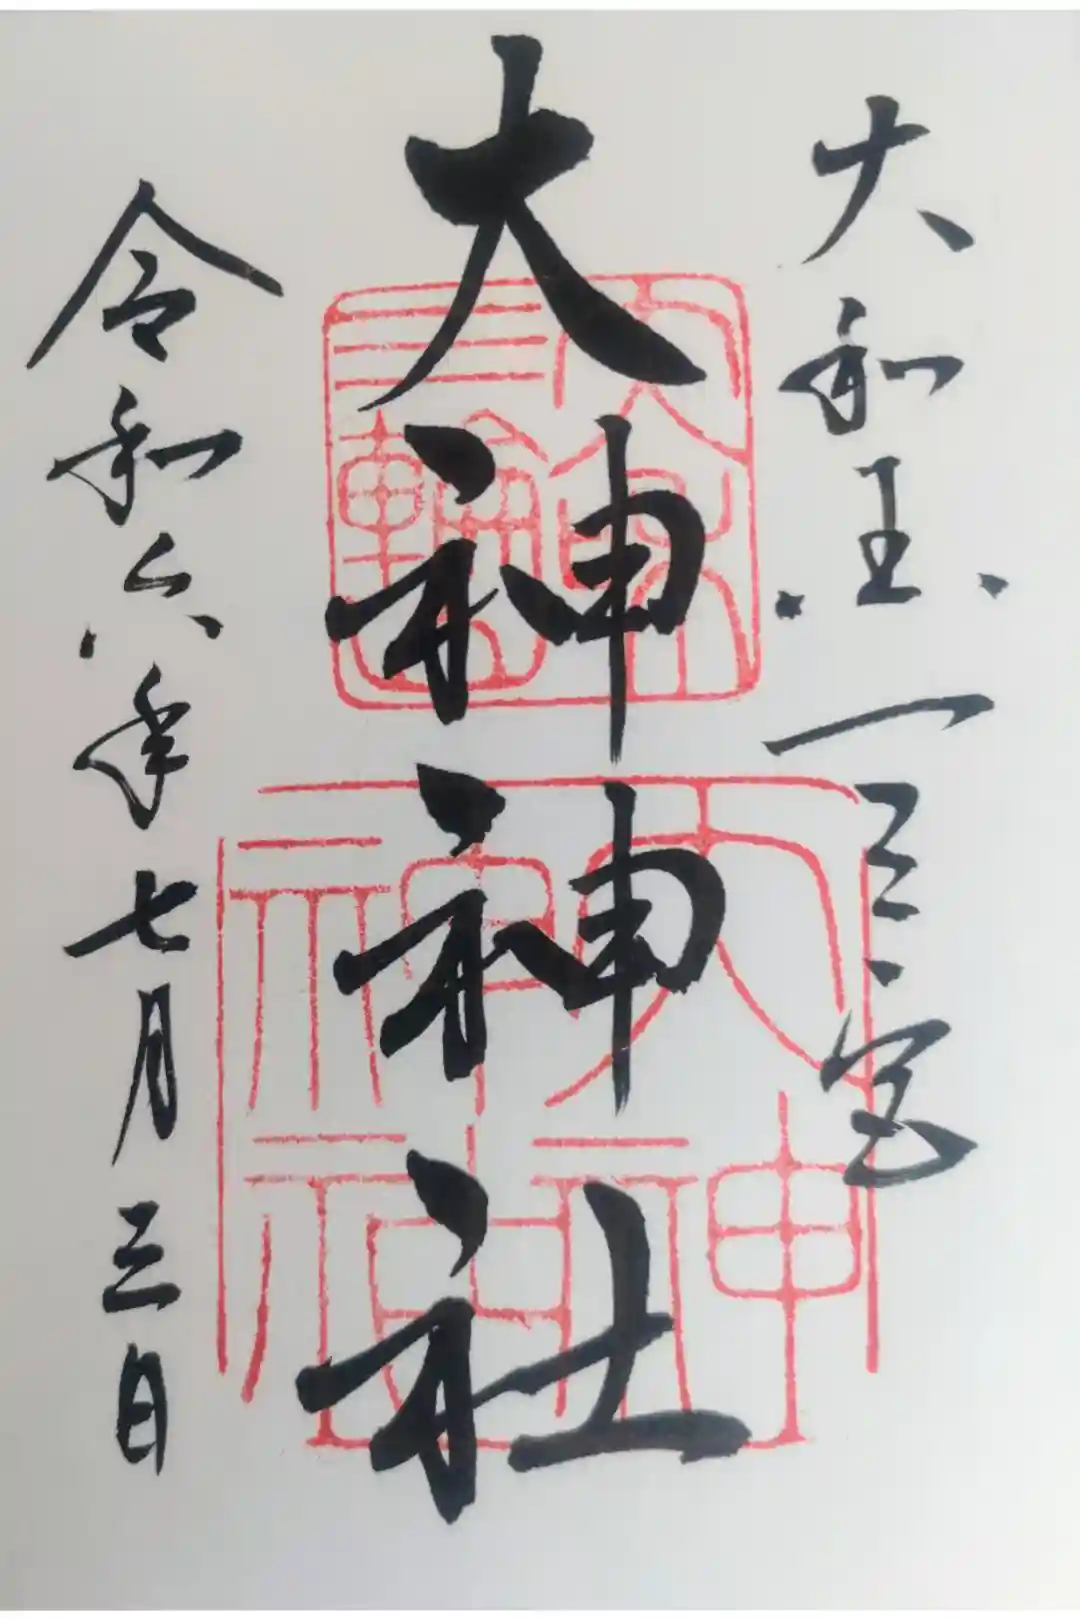 大和国一之宮
大神神社
令和六年七月三日
大神
神社
三輪